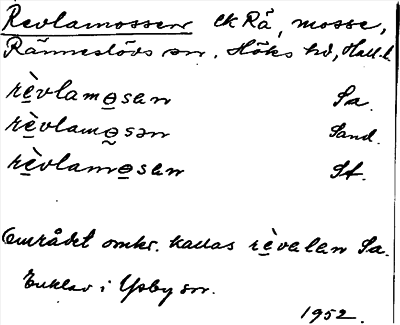 Revlamossen ek Rå, mosse,
Ränneslövs sn. Höks hd, Hall. l.
rèvlamosan Sa.
rèvlamosən Sand.
rèvlamosan St.
Området omkr. kallas rèvalan Sa.
Enklav i Ysby sn.
1952.